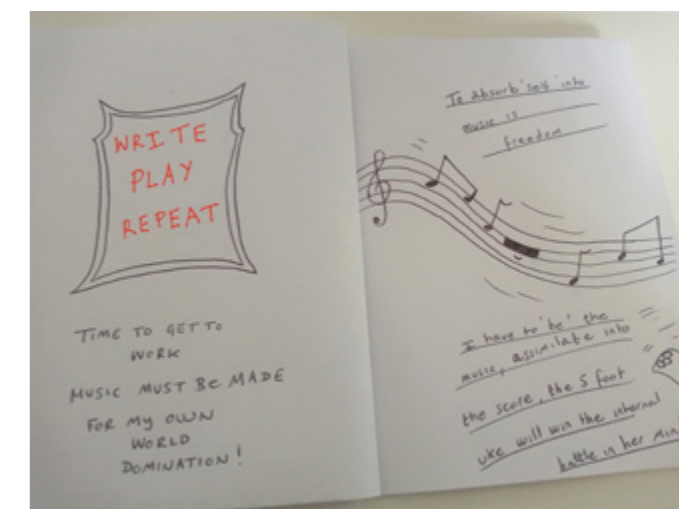 WRITE
PLAY
REPEAT
TIME TO GET TO
WORK
MUSIC MUST BE MADE
FOR MY OWN
WORLD
DOMINATION!
To absorb 'self' into
music is
freedom
I have to 'be' the
music, assimilate into
the score, the 5 foot
uke will win the internal
battle in her